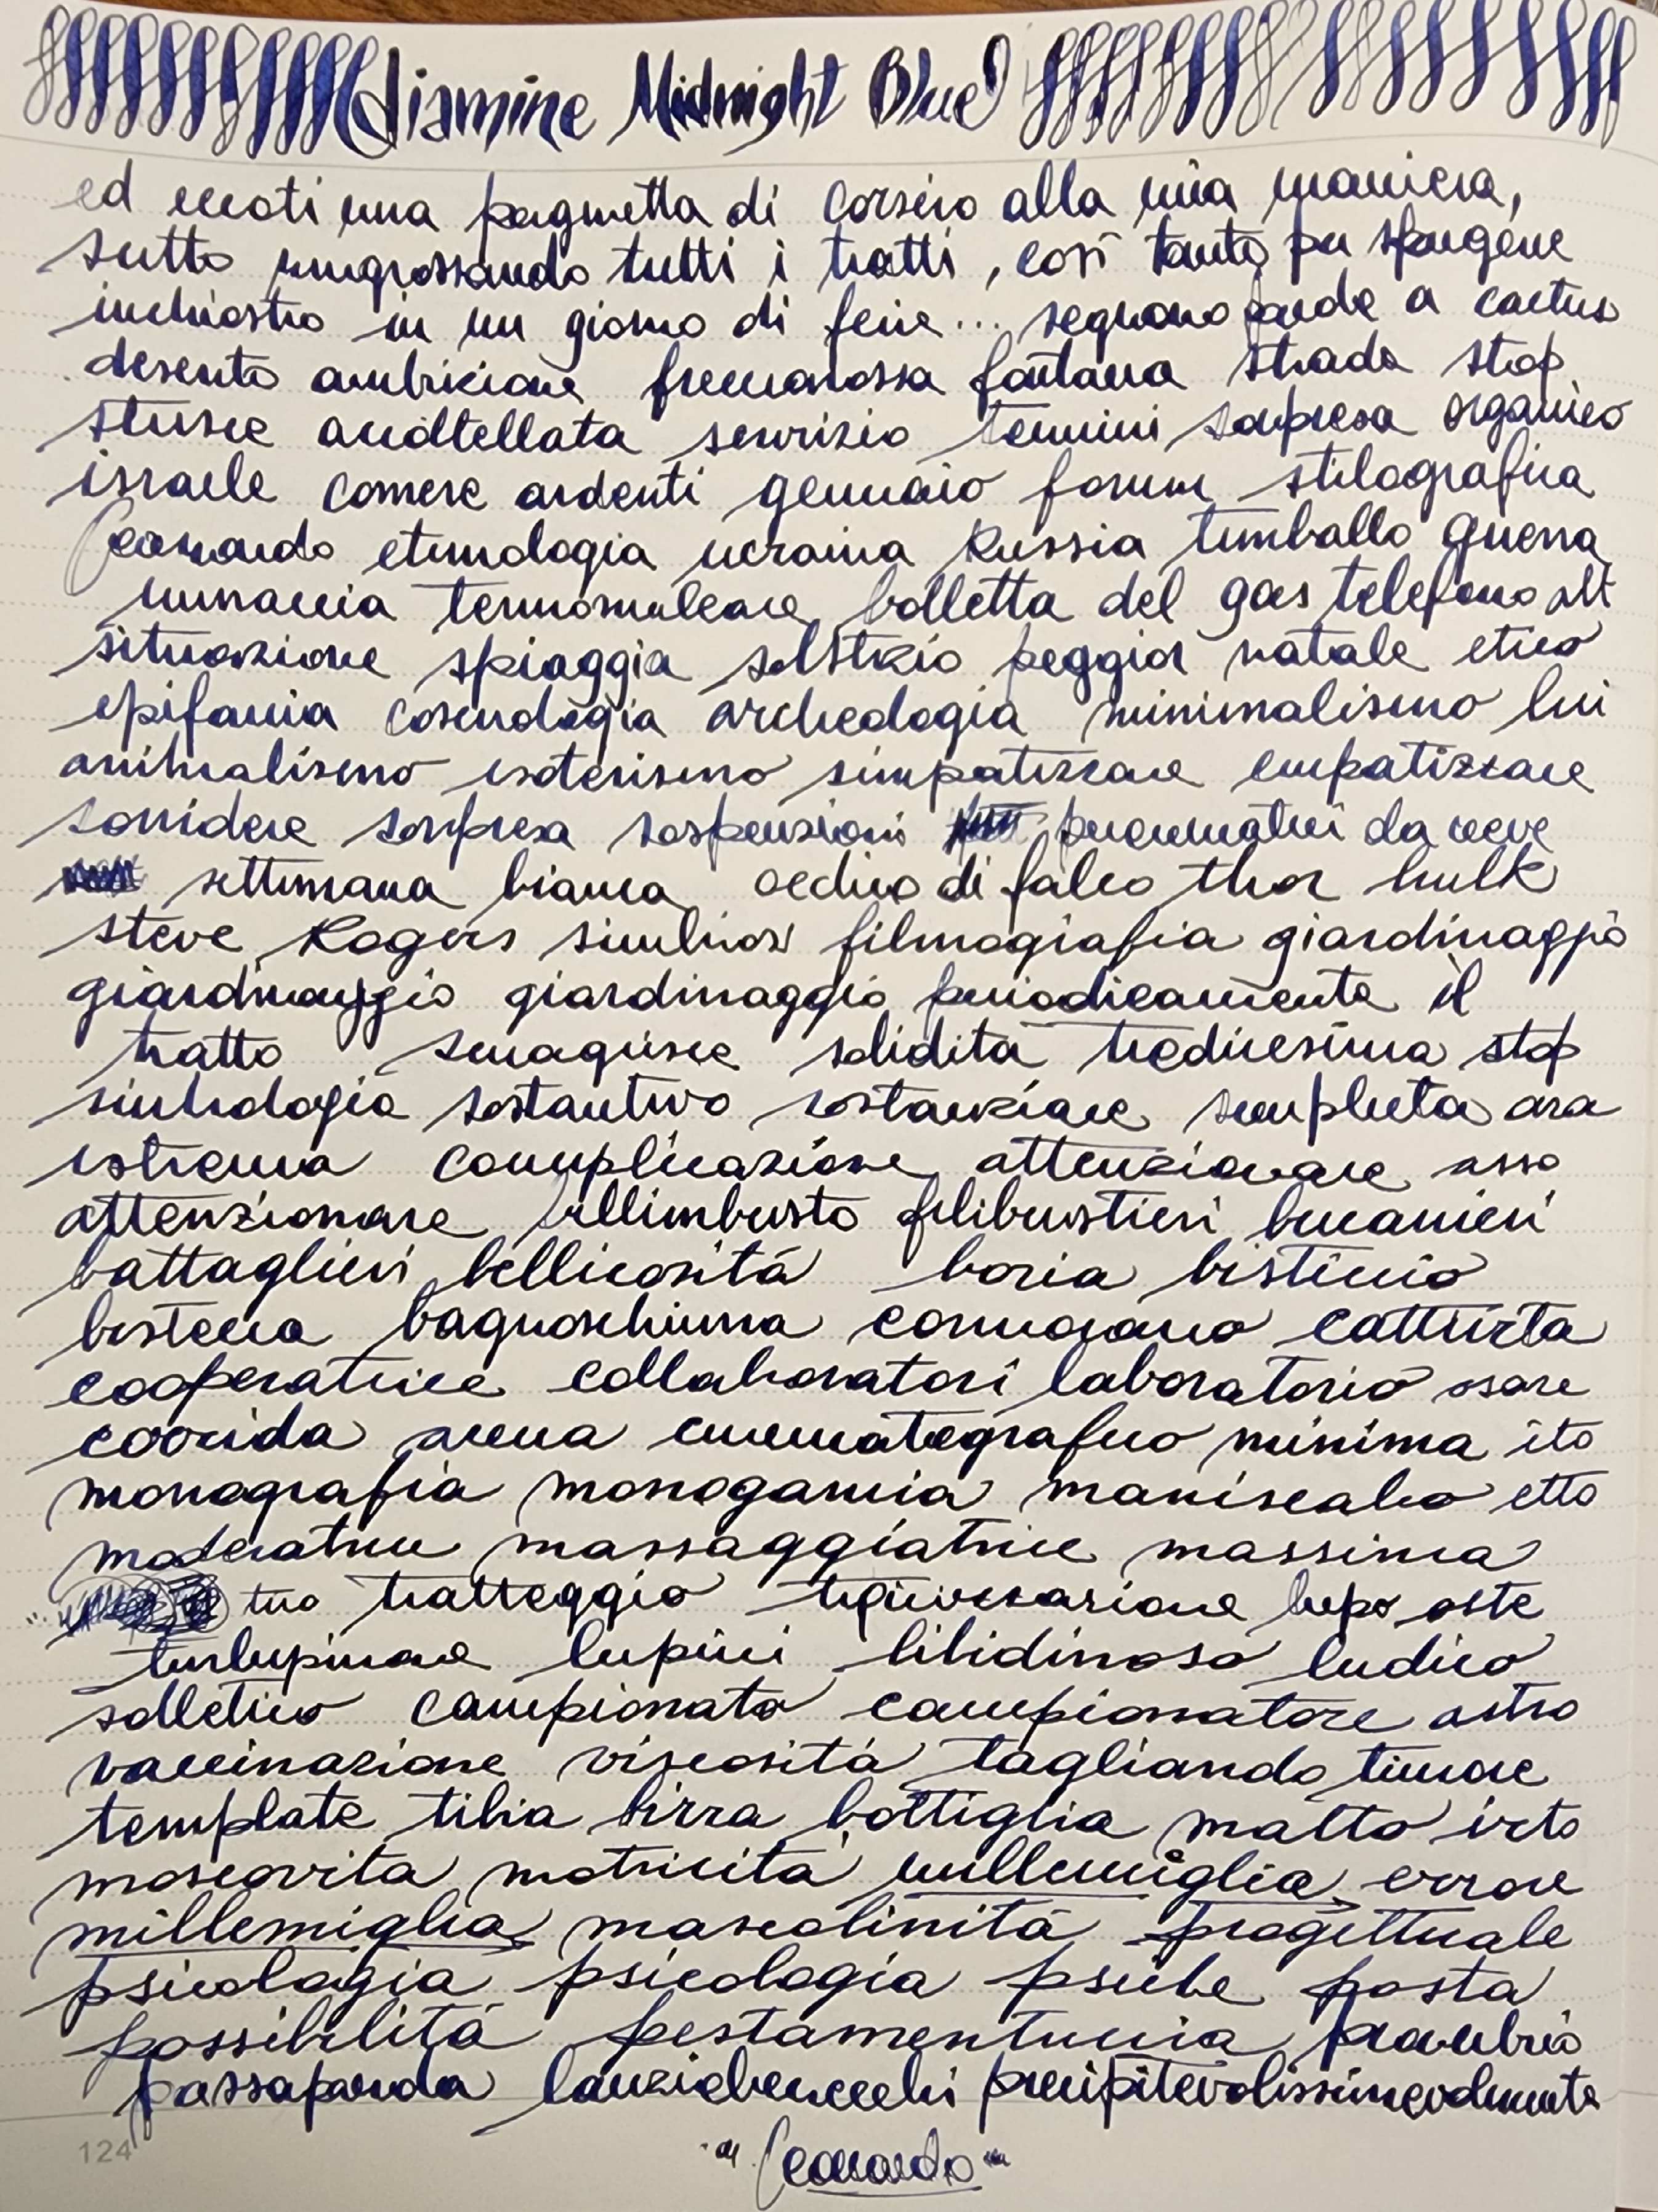 Diamine Midnight Blue
ed eccoti una paginetta di corsivo alla mia maniera,
sotto ringrossando tutti i tratti, così tanto per spargere
inchiostro in un giorno di ferie... seguono parole a cactus
deserto ambizione fontana strada stop
sterne accoltellata servizio termini sorpresa organico
israele comere ardenti gennaio forum stilografica
Leonardo etimologia ucraina Russia timballo guerra
minaccia termonucleare bolletta del gas telefono alt
situazione spiaggia solstizio peggior natale etico
epifania cosmologia archeologia minimalismo lui
animalismo esoterismo simpatizzare empatizzare
sorridere sorpresa sospensioni pneumatici da neve
settimana bianca occhio di falco thor hulk
steve Rogers simbiosi filmografia giardinaggio
giardinaggio giardinaggio periodicamente il
tratto smagrisce solidità tredicesima stop
simbologia sostantivo sostanziare scempluta ara
estrema complicazione attenzionare asso
attenzionare fillimbusto filibustieri bucanieri
battaglieri bellicosità boria bisticcio
bistecca bagnoschiuma cormorano cattura
cooperatrice collaboratori laboratorio osare
corrida arena cinematografico minima ito
monografia monogamia maniscalco etto
moderatrice massaggiatrice massima
tuo tratteggio tergiversazione lupo oste
turlupinare lupini libidinoso ludico
solletico campionato campionatore astro
vaccinazione viscosità tagliando timore
template tibia birra bottiglia matto irto
moscovita motricità millemiglia errore
millemiglia mascolinità progettuale
psicologia psicologia psiche posta
possibilità pestamentuccia proverbio
passaparola lanzichenecchi precipitevolissimevolmente
124
"Leonardo"